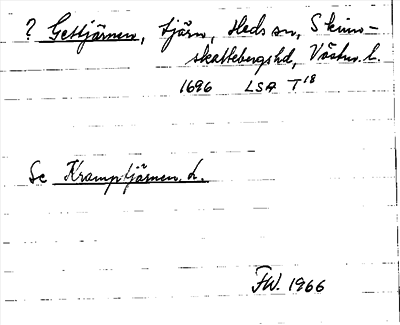 ? Gettjärnen, tjärn, Heds sn, Skinn-
skattebergs hd, Västm. l.
1696 LSA T18
Se Kramptjärnen. L.
FW. 1966